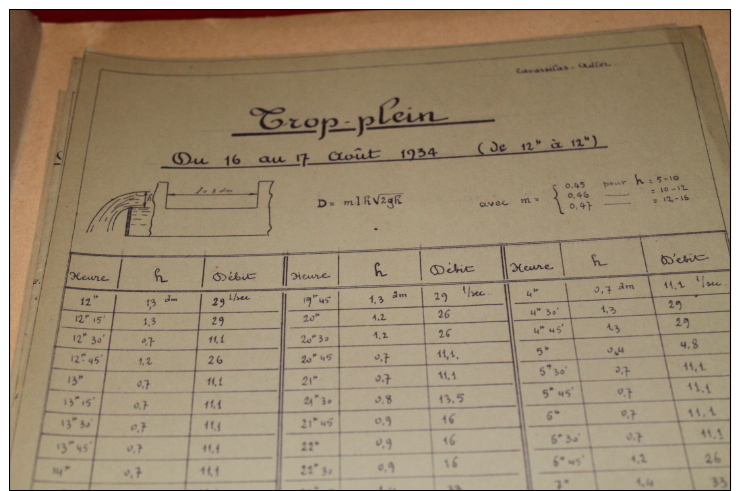 Trop-plein
Du 16 au 17 Août 1934 (de 12ʰ à 12ʰ)
l = 3 dm
D = m l h √2gh
avec m = { 0,45 pour h = 5-10
0,46 — = 10-12
0,47 — = 12-16
Heure h Débit Heure h Débit Heure h Débit
12ʰ 1,3 dm 29 l/sec 19ʰ45 1,3 dm 29 l/sec. 4ʰ 0,7 dm 11,1 l/sec.
12ʰ 15' 1,3 29 20ʰ 1,2 26 4ʰ 30' 1,3 29
12ʰ 30' 0,7 11,1 20ʰ30 1,2 26 4ʰ 45' 1,3 29
12ʰ 45' 1,2 26 20ʰ45 0,7 11,1. 5ʰ 0,4 4.8
13ʰ 0,7 11,1 21ʰ 0,7 11,1 5ʰ 30' 0,7 11,1
13ʰ 15' 0,7 11,1 21ʰ30 0,8 13.5 5ʰ 45' 0,7 11,1
13ʰ 30' 0,7 11,1 21ʰ45 0,9 16 6ʰ 0,7 11,1
13ʰ 45' 0,7 11,1 22ʰ 0,9 16 6ʰ 30' 0,7 11,1
14ʰ 0,7 11,1 22ʰ30 0,9 16 6ʰ 45' 1,2 26
7ʰ 1,4 33